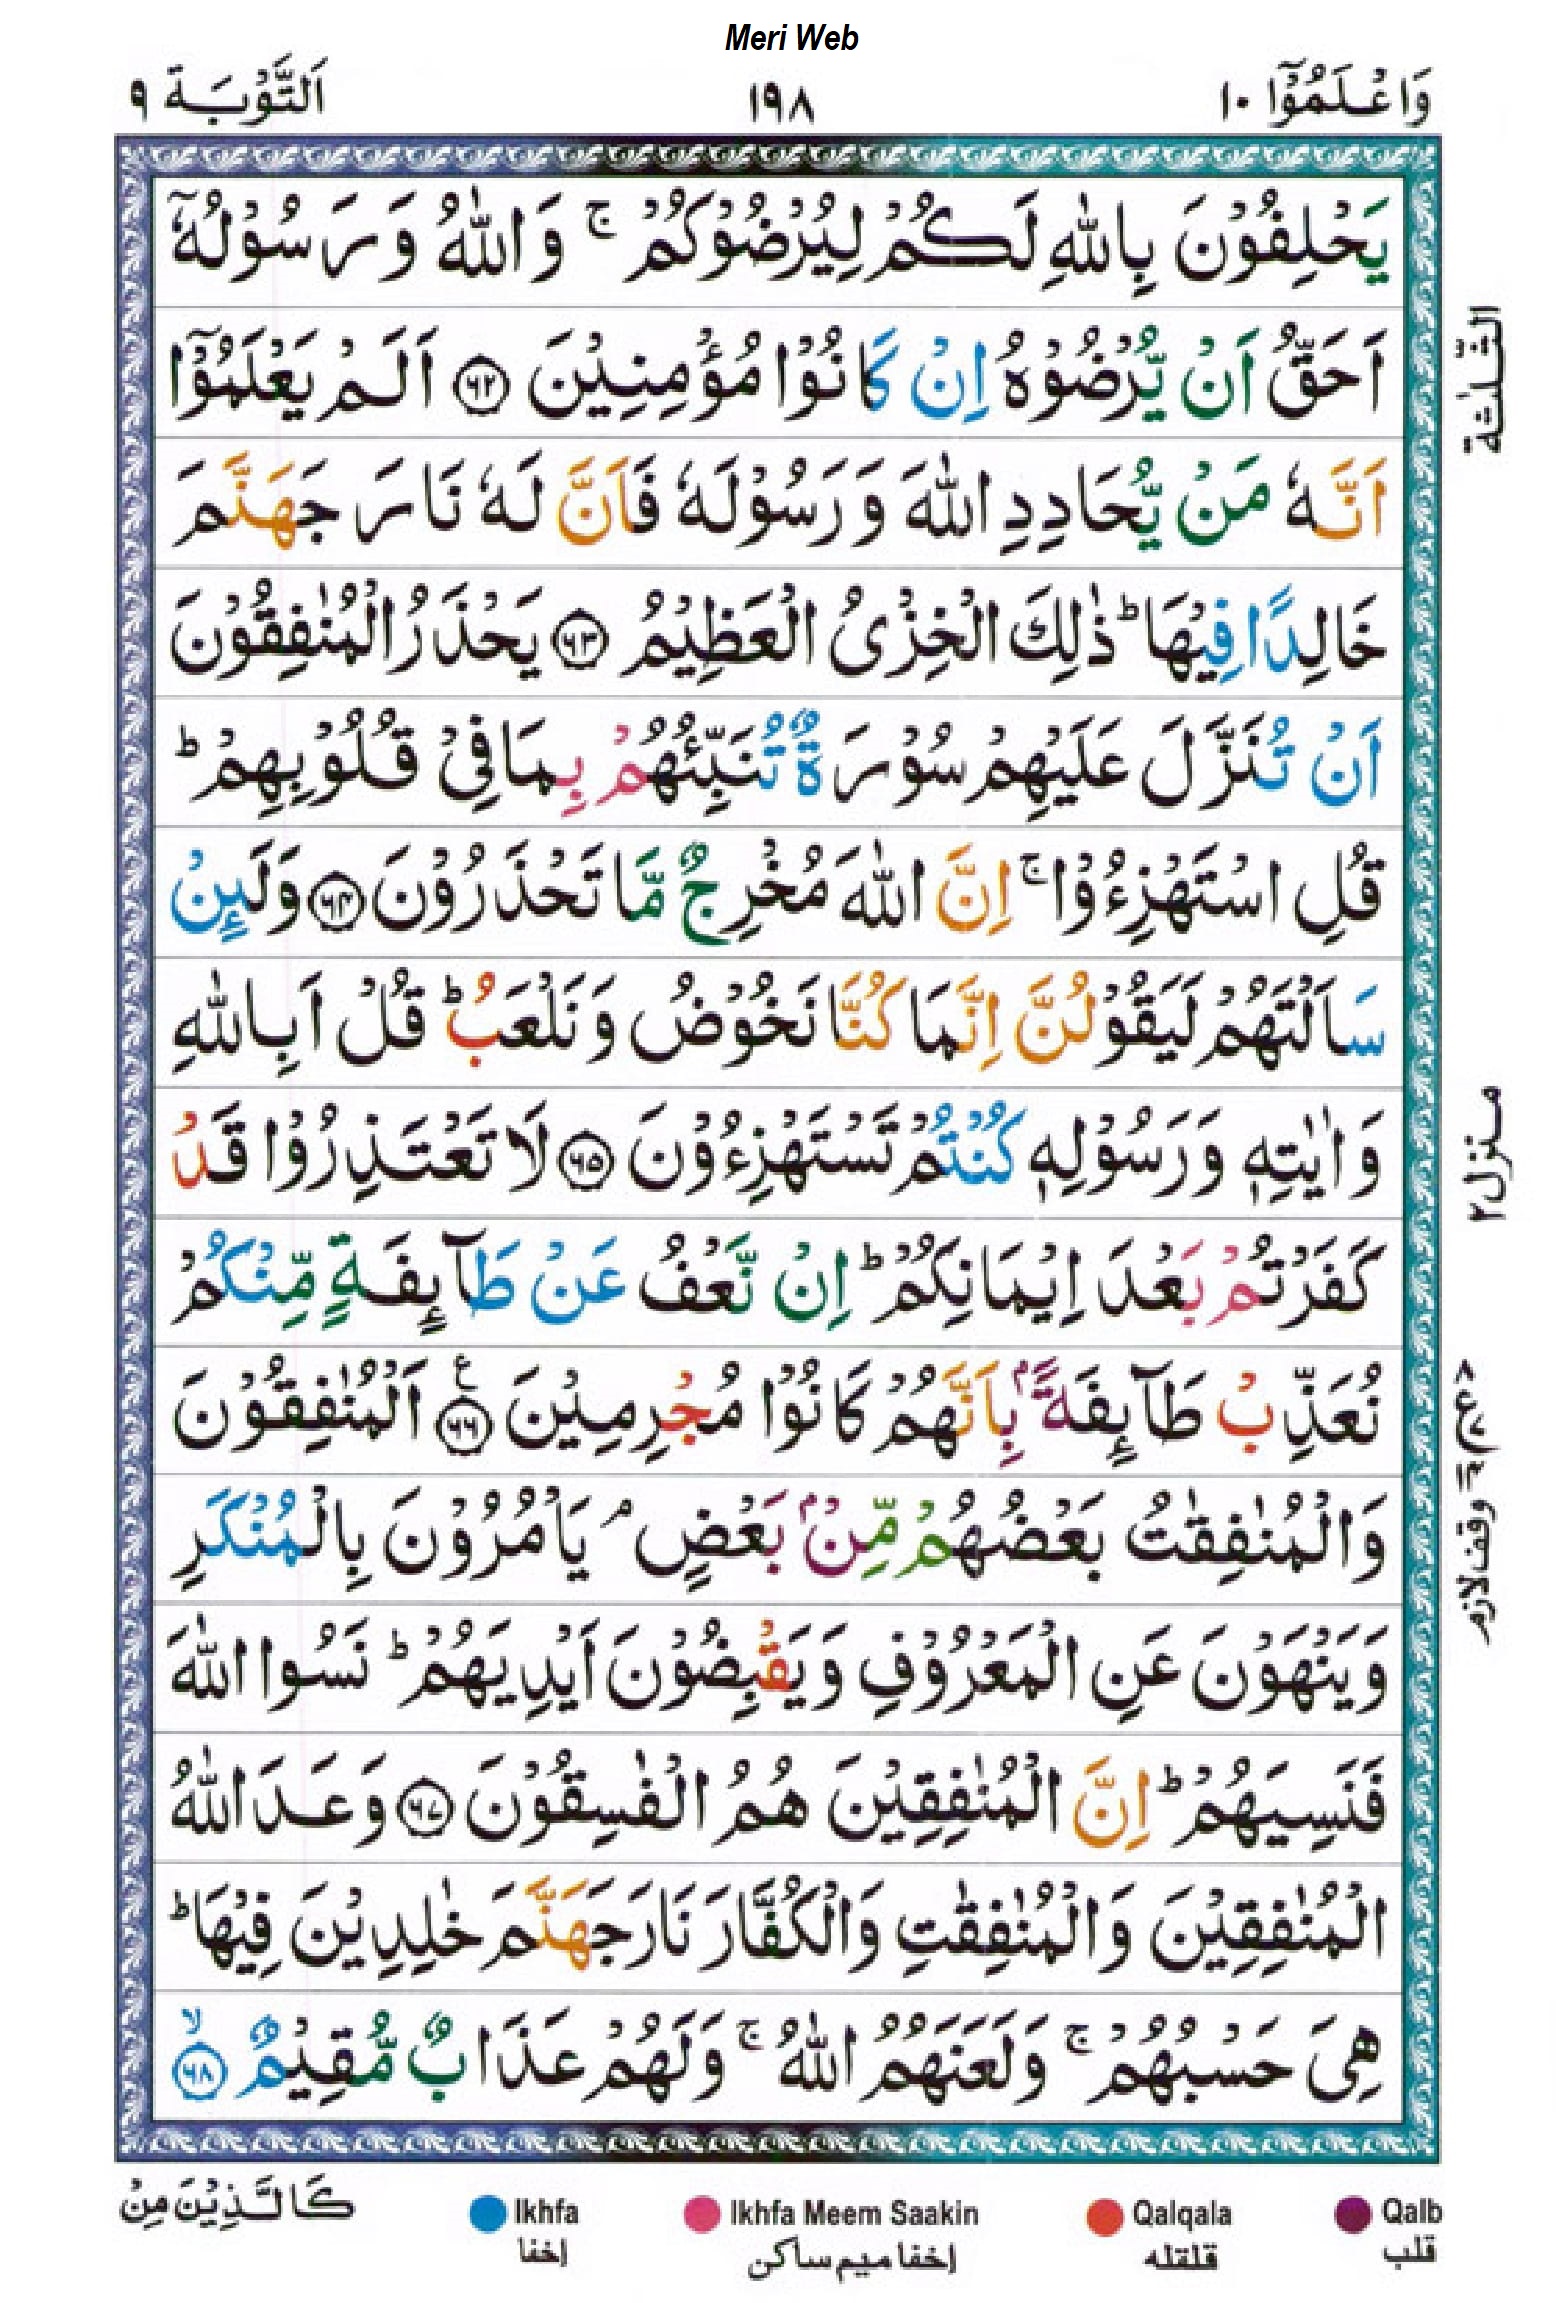 Meri Web
وَاعْلَمُوْٓا ١٠ ١٩٨ اَلتَّوْبَة ٩
يَحْلِفُوْنَ بِاللّٰهِ لَكُمْ لِيُرْضُوْكُمْ ۚ وَاللّٰهُ وَرَسُوْلُهٗٓ
اَحَقُّ اَنْ يُّرْضُوْهُ اِنْ كَانُوْا مُؤْمِنِيْنَ ﴿۶۲﴾ اَلَمْ يَعْلَمُوْٓا
اَنَّهٗ مَنْ يُّحَادِدِ اللّٰهَ وَرَسُوْلَهٗ فَاَنَّ لَهٗ نَارَ جَهَنَّمَ
خَالِدًا فِيْهَا ؕ ذٰلِكَ الْخِزْىُ الْعَظِيْمُ ﴿۶۳﴾ يَحْذَرُ الْمُنٰفِقُوْنَ
اَنْ تُنَزَّلَ عَلَيْهِمْ سُوْرَةٌ تُنَبِّئُهُمْ بِمَا فِىْ قُلُوْبِهِمْ ؕ
قُلِ اسْتَهْزِءُوْا ۚ اِنَّ اللّٰهَ مُخْرِجٌ مَّا تَحْذَرُوْنَ ﴿۶۴﴾ وَلَئِنْ
سَاَلْتَهُمْ لَيَقُوْلُنَّ اِنَّمَا كُنَّا نَخُوْضُ وَنَلْعَبُ ؕ قُلْ اَبِاللّٰهِ
وَاٰيٰتِهٖ وَرَسُوْلِهٖ كُنْتُمْ تَسْتَهْزِءُوْنَ ﴿۶۵﴾ لَا تَعْتَذِرُوْا قَدْ
كَفَرْتُمْ بَعْدَ اِيْمَانِكُمْ ؕ اِنْ نَّعْفُ عَنْ طَآئِفَةٍ مِّنْكُمْ
نُعَذِّبْ طَآئِفَةًۢ بِاَنَّهُمْ كَانُوْا مُجْرِمِيْنَ ﴿۶۶﴾ ع اَلْمُنٰفِقُوْنَ
وَالْمُنٰفِقٰتُ بَعْضُهُمْ مِّنْۢ بَعْضٍ ۘ يَاْمُرُوْنَ بِالْمُنْكَرِ
وَيَنْهَوْنَ عَنِ الْمَعْرُوْفِ وَيَقْبِضُوْنَ اَيْدِيَهُمْ ؕ نَسُوا اللّٰهَ
فَنَسِيَهُمْ ؕ اِنَّ الْمُنٰفِقِيْنَ هُمُ الْفٰسِقُوْنَ ﴿۶۷﴾ وَعَدَ اللّٰهُ
الْمُنٰفِقِيْنَ وَالْمُنٰفِقٰتِ وَالْكُفَّارَ نَارَ جَهَنَّمَ خٰلِدِيْنَ فِيْهَا ؕ
هِىَ حَسْبُهُمْ ۚ وَلَعَنَهُمُ اللّٰهُ ۚ وَلَهُمْ عَذَابٌ مُّقِيْمٌ ۙ﴿۶۸﴾
الثلثة
منزل ۲
وقف لازم
كَالَّذِيْنَ مِنْ
Ikhfa Ikhfa Meem Saakin Qalqala Qalb
إخفا إخفا ميم ساكن قلقله قلب